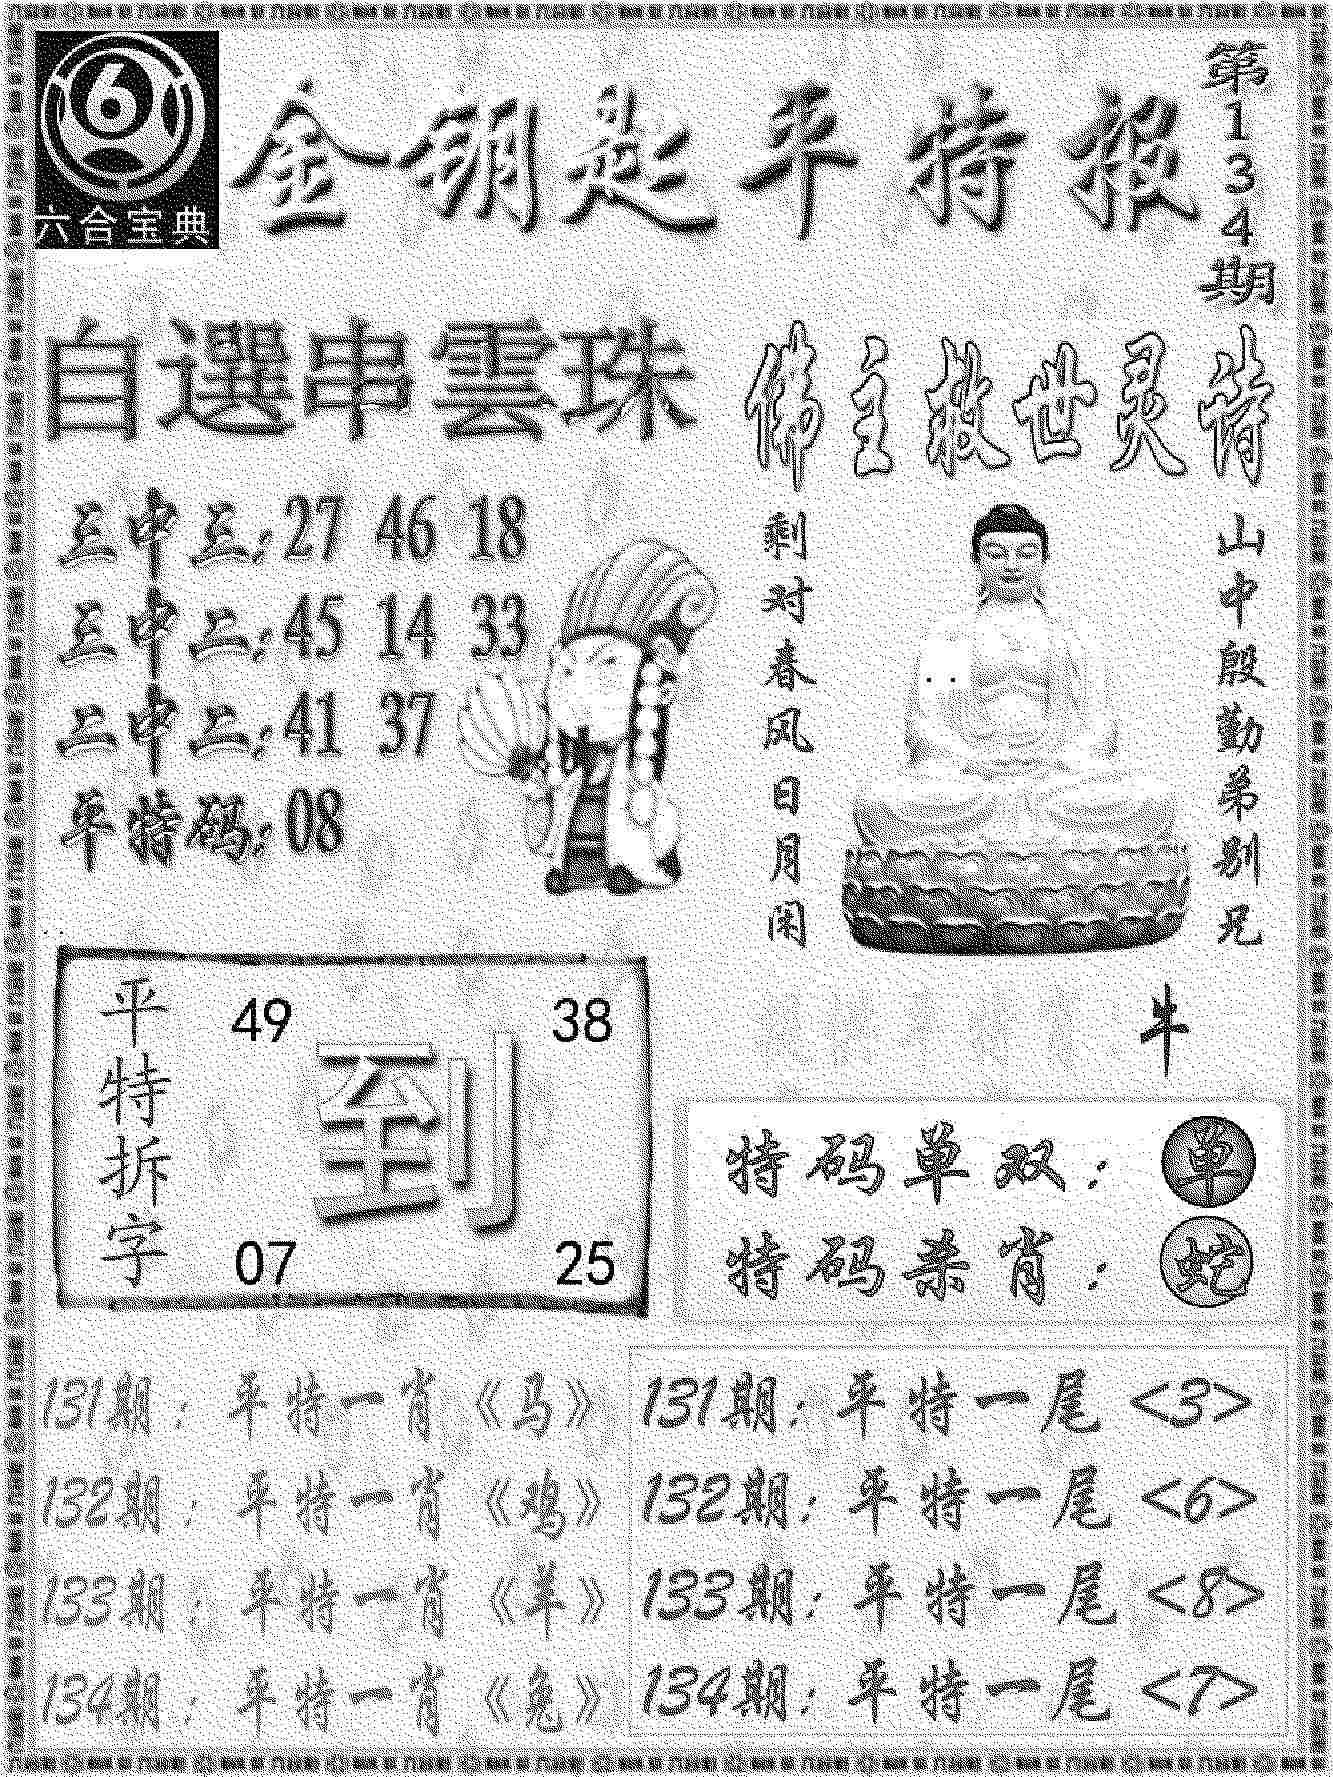 六合宝典
金钥匙平特报
第134期
自選串雲珠
三中三:27 46 18
三中二:45 14 33
二中二:41 37
平特码:08
佛主救世灵诗
山中殷勤弟别兄
剩对春风日月闲
牛
平特拆字
49 38
到
07 25
特码单双:单
特码杀肖:蛇
131期:平特一肖《马》
132期:平特一肖《鸡》
133期:平特一肖《羊》
134期:平特一肖《兔》
131期:平特一尾<3>
132期:平特一尾<6>
133期:平特一尾<8>
134期:平特一尾<7>